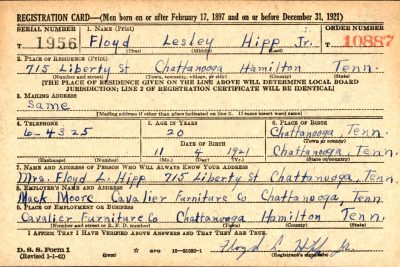 REGISTRATION CARD—(Men born on or after February 17, 1897 and on or before December 31, 1921)
SERIAL NUMBER 1. NAME (Print) ORDER NUMBER
T 1956 Floyd Lesley Hipp Jr. T 10887
(First) (Middle) (Last)
2. PLACE OF RESIDENCE (Print)
715 Liberty St Chattanooga Hamilton Tenn.
(Number and street) (Town, township, village, or city) (County) (State)
[THE PLACE OF RESIDENCE GIVEN ON THE LINE ABOVE WILL DETERMINE LOCAL BOARD
JURISDICTION; LINE 2 OF REGISTRATION CERTIFICATE WILL BE IDENTICAL]
3. MAILING ADDRESS
Same
[Mailing address if other than place indicated on line 2. If same insert word same]
4. TELEPHONE 5. AGE IN YEARS 6. PLACE OF BIRTH
6-4325 20 Chattanooga, Tenn.
DATE OF BIRTH (Town or county)
11 4 1921 Chattanooga, Tenn.
(Exchange) (Number) (Mo.) (Day) (Yr.) (State or country)
7. NAME AND ADDRESS OF PERSON WHO WILL ALWAYS KNOW YOUR ADDRESS
Mrs. Floyd L. Hipp 715 Liberty St Chattanooga, Tenn.
8. EMPLOYER'S NAME AND ADDRESS
Mack Moore Cavalier Furniture Co Chattanooga, Tenn.
9. PLACE OF EMPLOYMENT OR BUSINESS
Cavalier Furniture Co Chattanooga Hamilton Tenn.
(Number and street or R. F. D. number) (Town) (County) (State)
I AFFIRM THAT I HAVE VERIFIED ABOVE ANSWERS AND THAT THEY ARE TRUE.
D. S. S. Form 1 GPO
(Revised 1-1-42) (over) Floyd L. Hipp Jr.
(Registrant's signature)